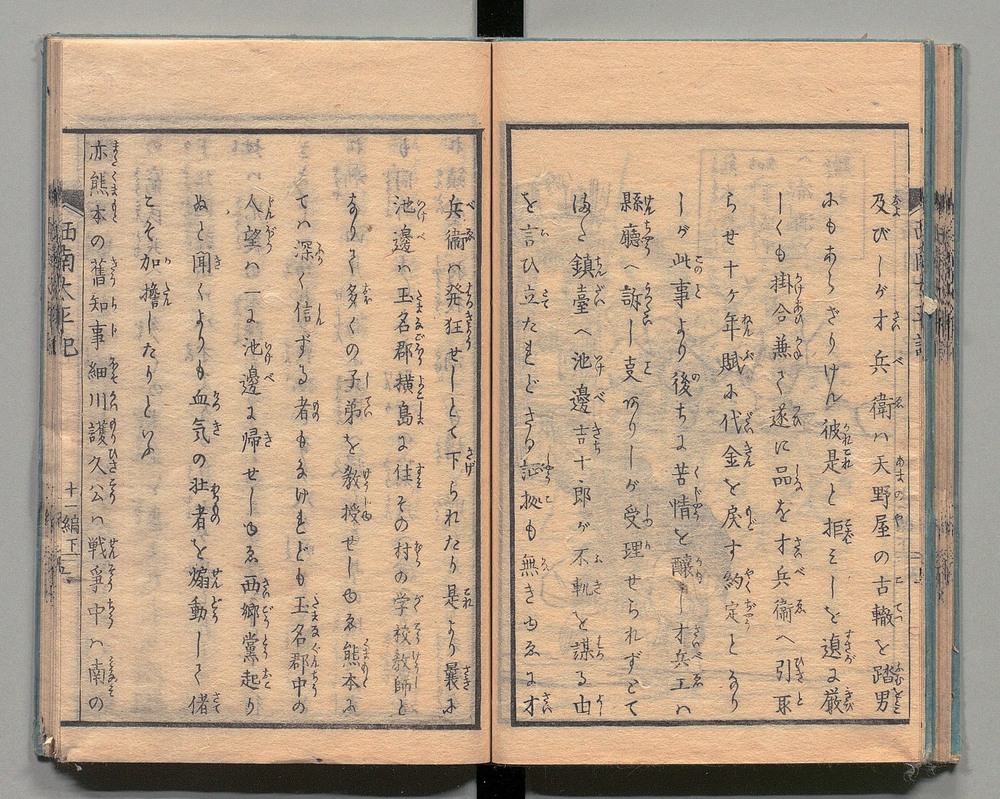 及びしが才兵衛ハ天野屋の古轍を踏男
にもあらざりけん彼是と拒ミしを遉に厳
しくも掛合兼て遂に品を才兵衛へ引取
らせ十ヶ年賦に代金を戻す約定となり
しが此事より後ちに苦情を醸し才兵エハ
縣廳へ訴し支ありしが受理せられずとて
後に鎮臺へ池邊吉十郎が不軌を謀る由
を言ひ立たれどさる証拠も無きゆゑに才
兵衛ハ発狂せしとて下られたり是より曩に
池邊ハ玉名郡横島に住その村の学校教師と
なりて多くの子弟を教授せしゆゑ熊本に
てハ深く信ずる者もなけれども玉名郡中の
人望ハ一に池邊に帰せしゆゑ西郷黨起り
ぬと聞くよりも血気の壮者を煽動して偖
こそ加擔したりといふ
亦熊本の舊知事細川護久公ハ戦爭中ハ南の
西南太平記
十一編下